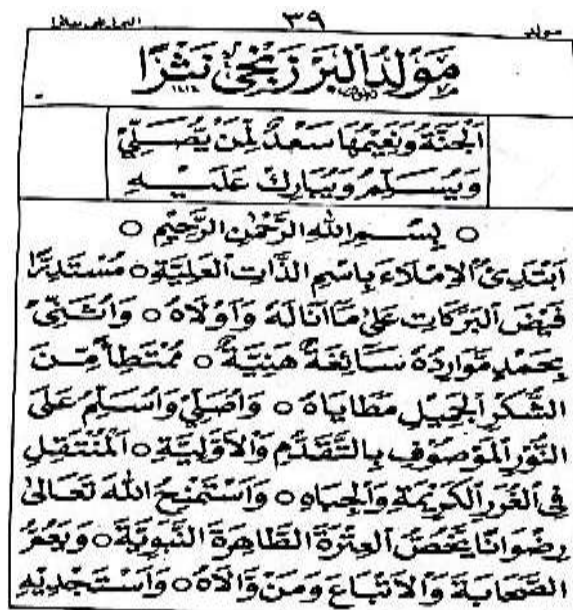 مولد ٣٩
مَوْلِدُ الْبَرْزَنْجِيْ نَثْرًا
اَلْجَنَّةُ وَنَعِيْمُهَا سَعْدٌ لِمَنْ يُصَلِّيْ
وَيُسَلِّمُ وَيُبَارِكُ عَلَيْهِ
○ بِسْمِ اللهِ الرَّحْمٰنِ الرَّحِيْمِ ○
اَبْتَدِئُ الْاِمْلَاءَ بِاسْمِ الذَّاتِ الْعَلِيَّةِ ○ مُسْتَدِرًّا
فَيْضَ الْبَرَكَاتِ عَلٰى مَا اَنَالَهُ وَاَوْلَاهُ ○ وَاُثَنِّيْ
بِحَمْدٍ مَوَارِدُهُ سَائِغَةٌ هَنِيَّةٌ ○ مُمْتَطِأً مِنَ
الشُّكْرِ الْجَمِيْلِ مَطَايَاهُ ○ وَاُصَلِّيْ وَاُسَلِّمُ عَلَى
النُّوْرِ الْمَوْصُوْفِ بِالتَّقَدُّمِ وَالْاَوَّلِيَّةِ ○ اَلْمُنْتَقِلِ
فِي الْغُرَرِ الْكَرِيْمَةِ وَالْجِبَاهِ ○ وَاَسْتَمْنِحُ اللهَ تَعَالٰى
رِضْوَانًا يَخُصُّ الْعِتْرَةَ الطَّاهِرَةَ النَّبَوِيَّةَ ○ وَيَعُمُّ
الصَّحَابَةَ وَالْاَتْبَاعَ وَمَنْ وَالَاهُ ○ وَاَسْتَجْدِيْهِ